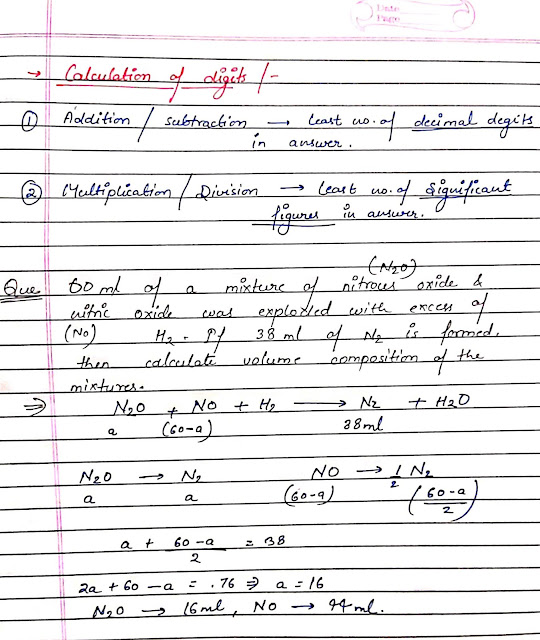 Date
Page
→ Calculation of digits /-
① Addition / subtraction → least no. of decimal degits
in answer.
② Multiplication / Division → least no. of significant
figures in answer.
(N2O)
Que 60 ml of a mixture of nitrous oxide &
nitric oxide was exploded with excess of
(No) H2. If 38 ml of N2 is formed,
then calculate volume composition of the
mixtures.
⇒ N2O + NO + H2 ⟶ N2 + H2O
a (60-a) 38ml
N2O → N2 NO → 1/2 N2
a a (60-a) (60-a/2)
a + 60-a/2 = 38
2a + 60 - a = .76 ⇒ a = 16
N2O → 16ml, NO → 44ml.